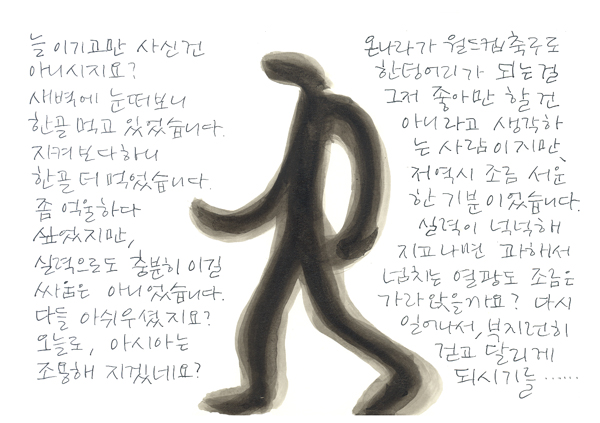 늘 이기고만 사신건
아니시지요?
새벽에 눈떠보니
한골 먹고 있었습니다.
지켜보다하니
한골 더 먹었습니다.
좀 억울하다
싶었지만,
실력으로도 충분히 이길
싸움은 아니었습니다.
다들 아쉬우셨지요?
오늘로, 아시아는
조용해 지겠네요?
온나라가 월드컵축구로
한덩어리가 되는걸
그저 좋아만 할 건
아니라고 생각하
는 사람이지만,
저 역시 조금 서운
한 기분이었습니다.
실력이 넉넉해
지고나면 과해서
넘치는 열광도 조금은
가라앉을까요? 다시
일어나서, 부지런히
걷고 달리게
되시기를……